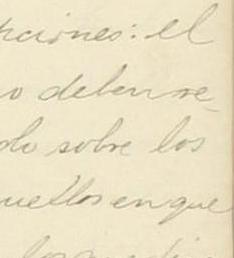 pciones: el
o deben re-
do sobre los
uellos en que